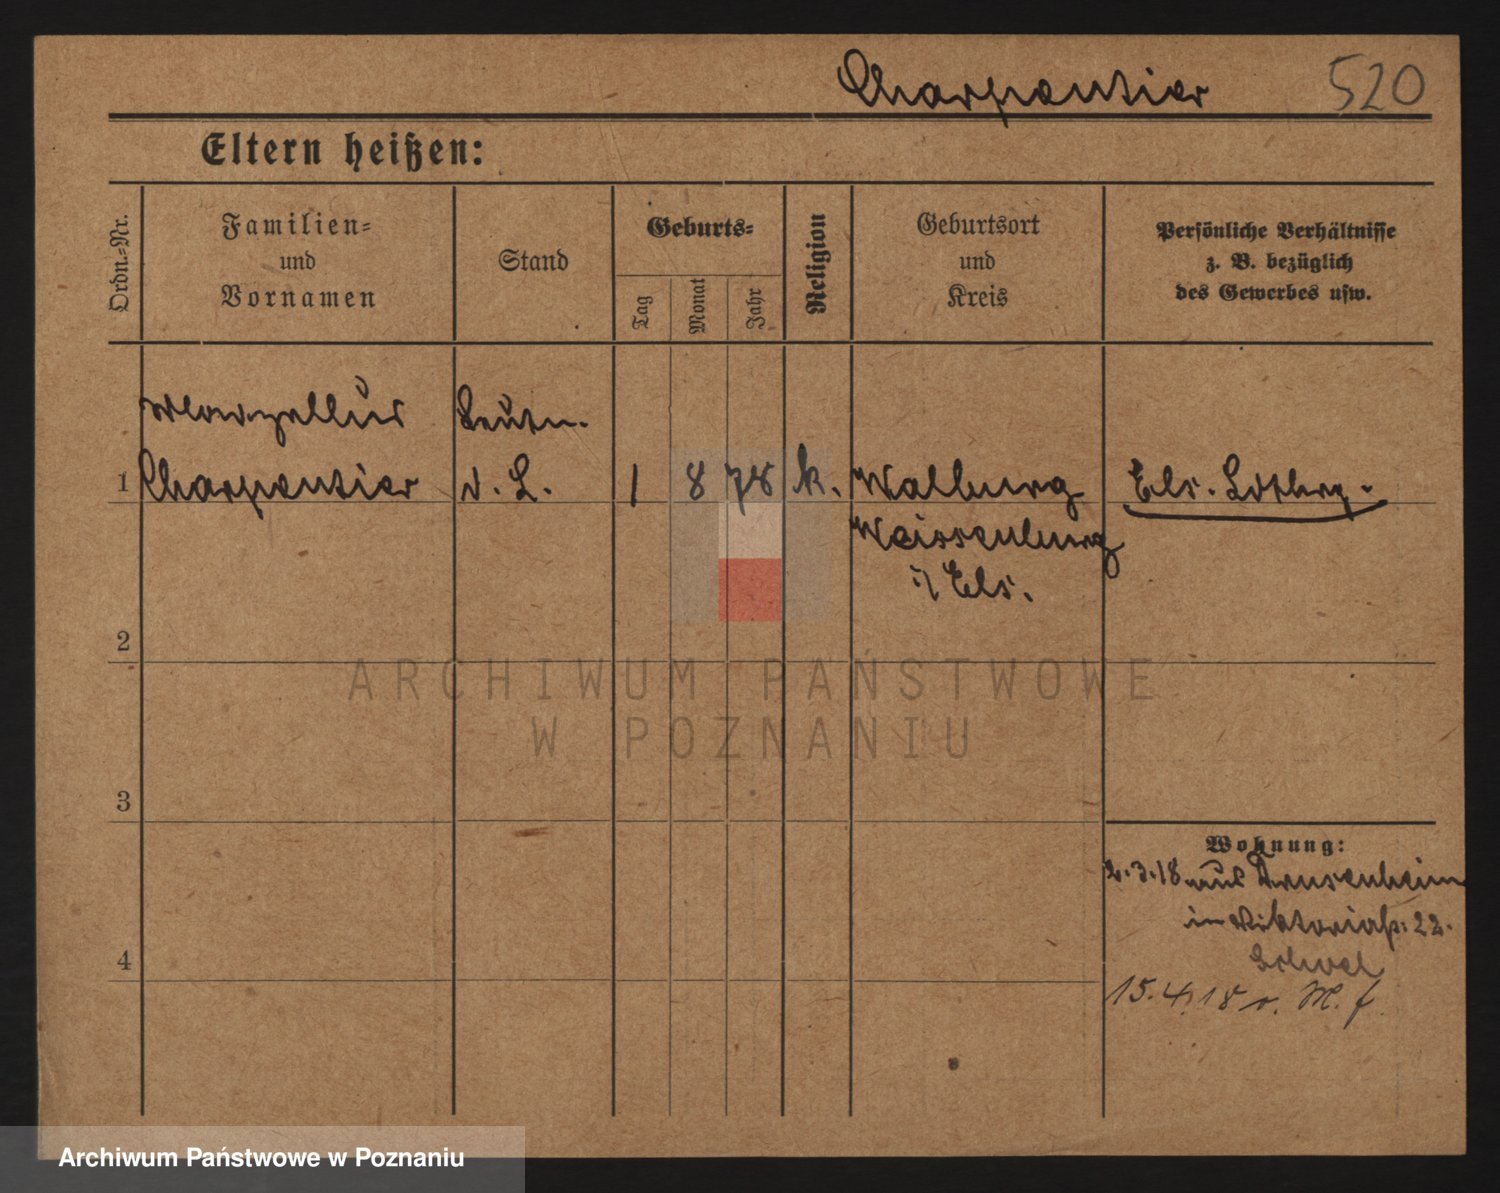 Charpentier 520
Eltern heißen:
Ordn.-Nr.
Familien-
und
Vornamen
Stand
Geburts-
Tag
Monat
Jahr
Religion
Geburtsort
und
Kreis
Persönliche Verhältnisse
z. B. bezüglich
des Gewerbes usw.
Marzellus Leutn.
1 Charpentier d. L. 1 8 78 k. Walburg Els. Lothrg.
Weissenburg
i/ Els.
2
ARCHIWUM PAŃSTWOWE
W POZNANIU
3
Wohnung:
2.3.18 aus Drusenheim
in Viktoriastr. 22.
4
15.4.18 v. M. f
Archiwum Państwowe w Poznaniu